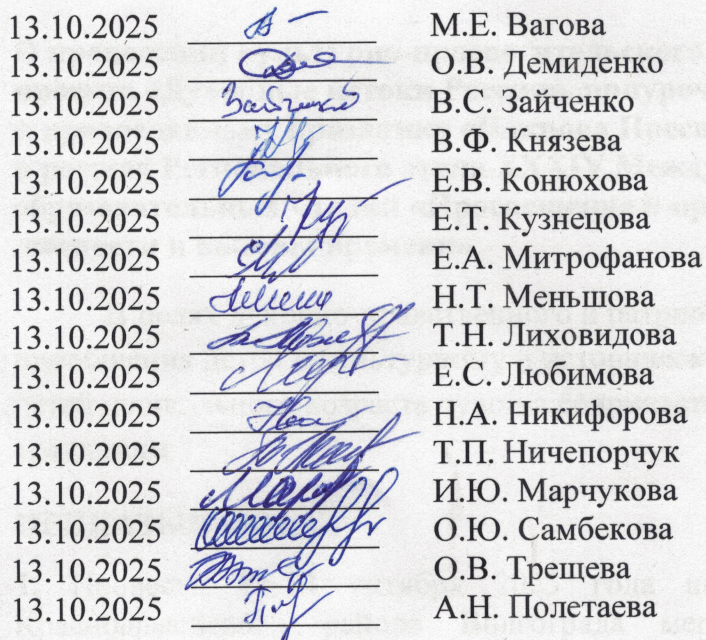 13.10.2025 М.Е. Вагова
13.10.2025 О.В. Демиденко
13.10.2025 В.С. Зайченко
13.10.2025 В.Ф. Князева
13.10.2025 Е.В. Конюхова
13.10.2025 Е.Т. Кузнецова
13.10.2025 Е.А. Митрофанова
13.10.2025 Н.Т. Меньшова
13.10.2025 Т.Н. Лиховидова
13.10.2025 Е.С. Любимова
13.10.2025 Н.А. Никифорова
13.10.2025 Т.П. Ничепорчук
13.10.2025 И.Ю. Марчукова
13.10.2025 О.Ю. Самбекова
13.10.2025 О.В. Трещева
13.10.2025 А.Н. Полетаева